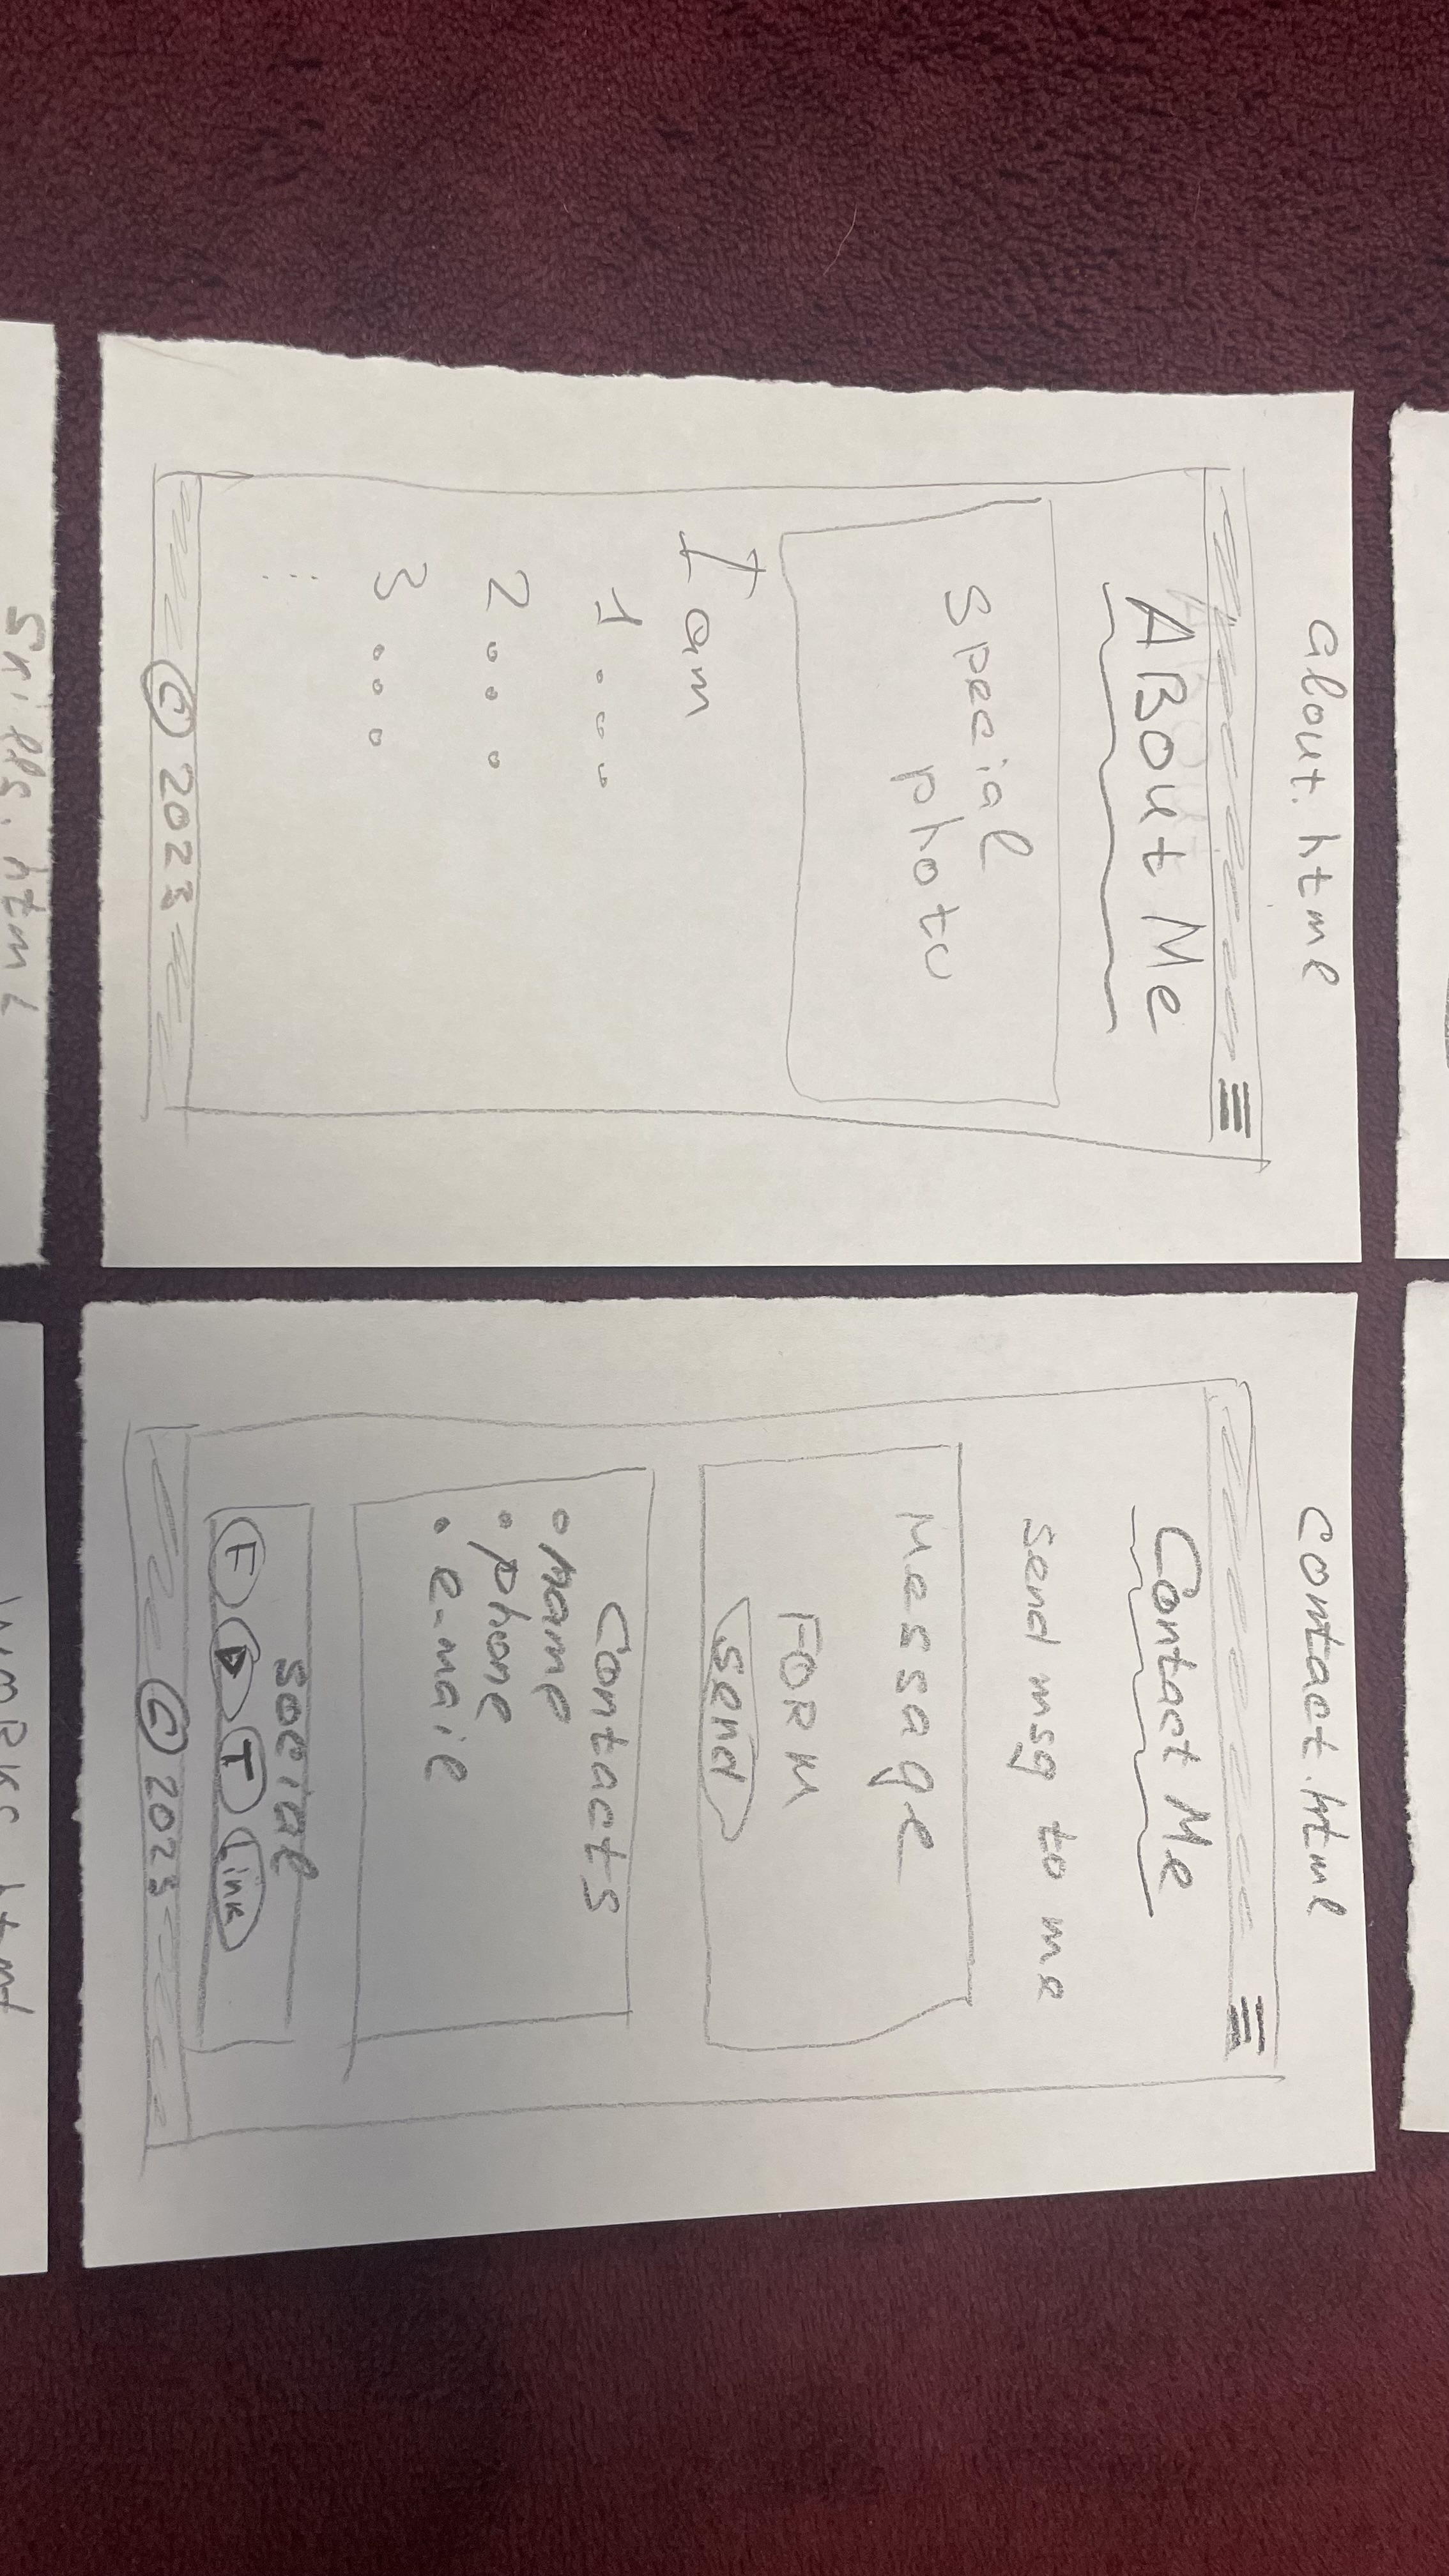 about.html
ABout Me
special
photo
I am
1 ...
2 ...
3 ...
© 2023
contact.html
Contact Me
send msg to me
Message
FORM
send
Contacts
• name
• phone
• e-mail
social
F T Link
© 2023
Skills.html
WORKS.html